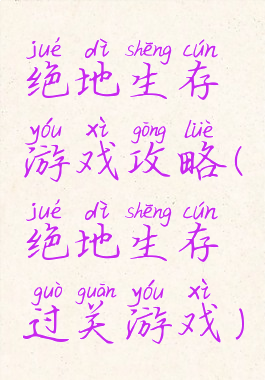 jué dì shēng cún
绝地生存
yóu xì gōng lüè
游戏攻略(
jué dì shēng cún
绝地生存
guò guān yóu xì
过关游戏)